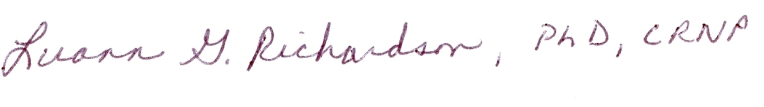 Luann G. Richardson, PhD, CRNP